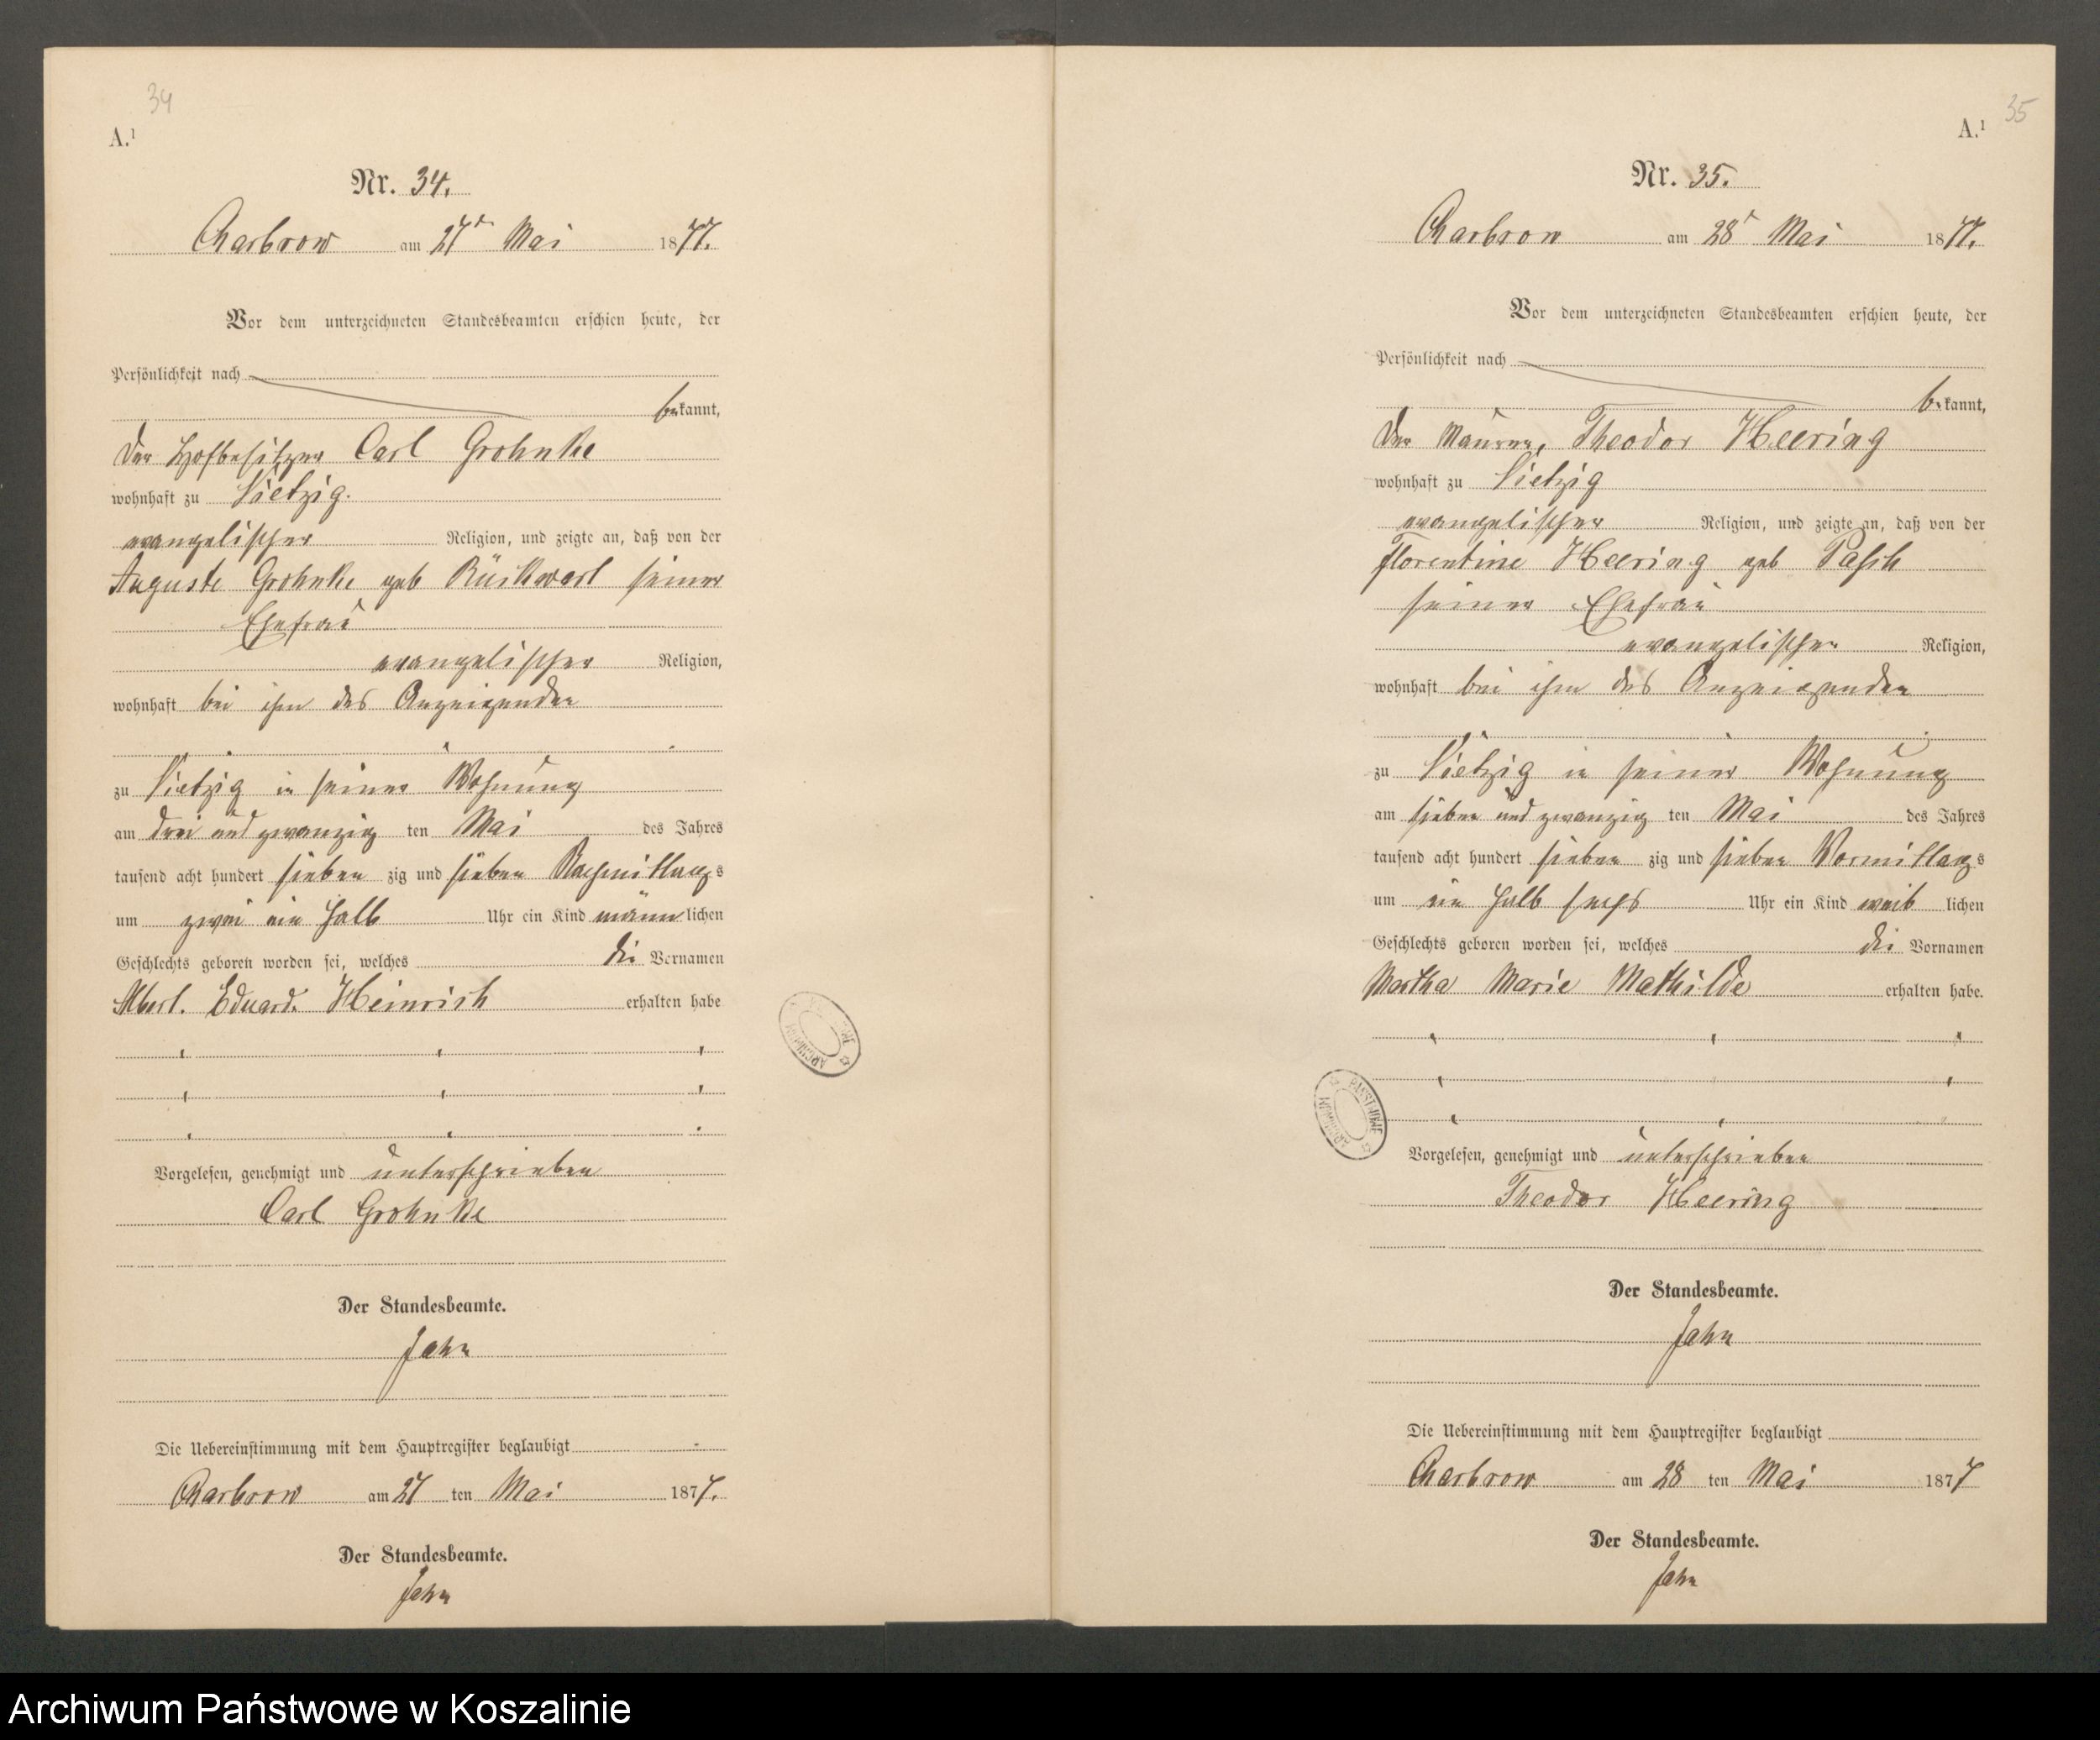 34
A.¹
Nr. 34.
Charbrow am 27ᵗ Mai 1877.
Vor dem unterzeichneten Standesbeamten erschien heute, der
Persönlichkeit nach
bekannt,
der Hofbesitzer Carl Grohnke
wohnhaft zu Vietzig.
evangelischer Religion, und zeigte an, daß von der
Auguste Grohnke geb Rückwart seiner
Ehefrau
evangelischer Religion,
wohnhaft bei ihm des Anzeigenden
zu Vietzig in seiner Wohnung
am drei und zwanzig ten Mai des Jahres
tausend acht hundert sieben zig und sieben Nachmittags
um zwei ein halb Uhr ein Kind männlichen
Geschlechts geboren worden sei, welches die Vornamen
Albert. Eduard. Heinrich erhalten habe
Vorgelesen, genehmigt und unterschrieben
Carl Grohnke
Der Standesbeamte.
Jahn
Die Uebereinstimmung mit dem Hauptregister beglaubigt
Charbrow am 27 ten Mai 1877.
Der Standesbeamte.
Jahn
35
A.¹
Nr. 35.
Charbrow am 28ᵗ Mai 1877.
Vor dem unterzeichneten Standesbeamten erschien heute, der
Persönlichkeit nach
bekannt,
der Maurer, Theodor Heering
wohnhaft zu Vietzig
evangelischer Religion, und zeigte an, daß von der
Florentine Heering geb Pasch
seiner Ehefrau
evangelischer Religion,
wohnhaft bei ihm des Anzeigenden
zu Vietzig in seiner Wohnung
am sieben und zwanzig ten Mai des Jahres
tausend acht hundert sieben zig und sieben Vormittags
um ein halb sechs Uhr ein Kind weib lichen
Geschlechts geboren worden sei, welches die Vornamen
Martha Marie Mathilde erhalten habe.
Vorgelesen, genehmigt und unterschrieben
Theodor Heering
Der Standesbeamte.
Jahn
Die Uebereinstimmung mit dem Hauptregister beglaubigt
Charbrow am 28 ten Mai 1877
Der Standesbeamte.
Jahn
ARCHIWUM
ARCHIWUM PAŃSTWOWE
Archiwum Państwowe w Koszalinie